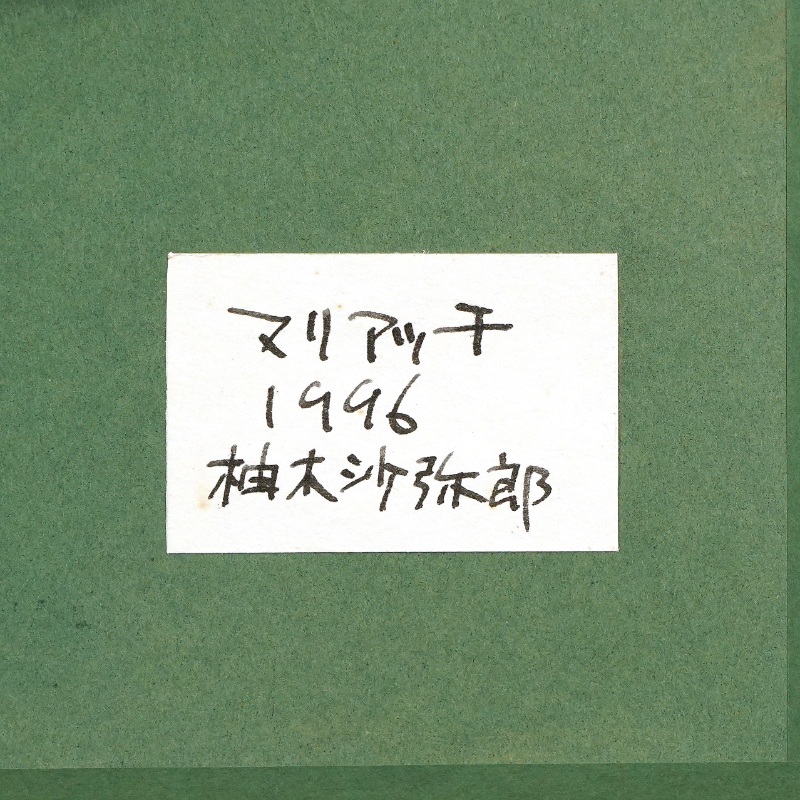 マリアッチ
1996
柚木沙弥郎